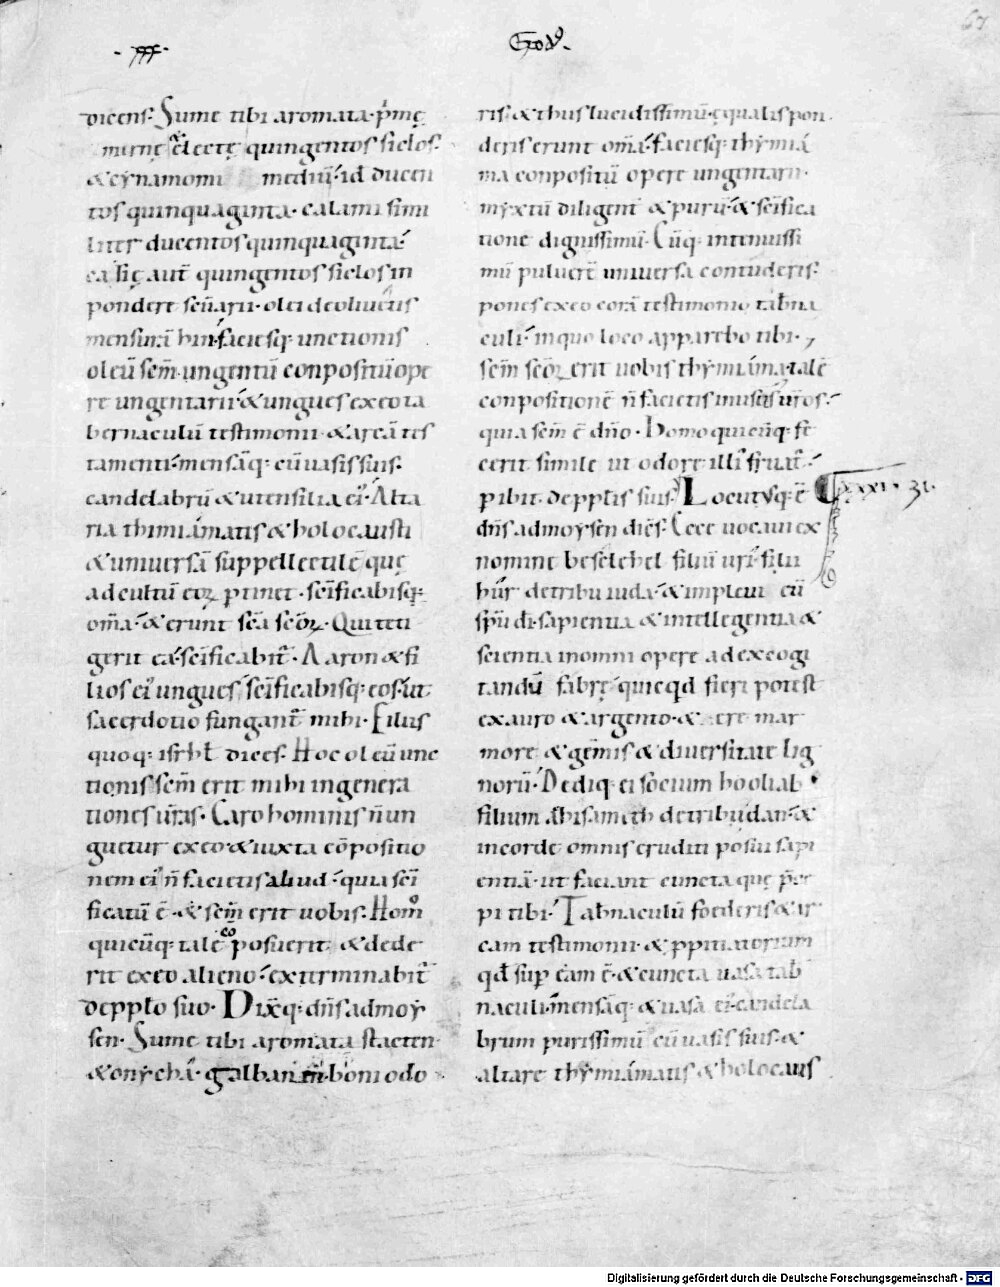 ·xxx·
Exod9·
67
dicens· Sume tibi aromata· p̄mę
mirrę & electę quingentos siclos·
& cynamomi mediū· id ducen
tos quinquaginta· calami simi
liter ducentos quinquaginta·
casię aut̄ quingentos siclos in
pondere sc̄uarii· olei deoliuetis
mensurā hin· faciesq; unctionis
oleū sc̄m· ungentū conpositū ope
re ungentarii· & ungues exeo ta
bernaculū testimonii· & arcā tes
tamenti· mensāq; cū uasis suis·
candelabrū & utensilia ei· Alta
ria thimiamatis & holocausti
& uniuersā suppellectilē quę
ad cultū eoꝝ ptinet· sc̄ificabisq;
om̄a· & erunt sc̄a sc̄oꝝ· Qui teti
gerit ea· sc̄ificabit̄· Aaron & fi
lios ei ungues· sc̄ificabisq; eos· ut
sacerdotio fungant̄ mihi· Filiis
quoq; isrhł dices· Hoc oleū unc
tionis sc̄m erit mihi ingenera
tiones ur̄as· Caro hominis n̄ un
guetur exeo· & iuxta cōpositio
nem ei n̄ facietis aliud· quia sc̄i
ficatū ē· & sc̄m erit uobis· Homo
quicūq; tale cōposuerit & dede
rit exeo alieno· exterminabit̄
depplo suo· Dixq; dn̄s admoy
sen· Sume tibi aromata stacten
& onychā· galbanū boni odo
ris· & thus lucidissimū· ęqualis pon
deris erunt om̄a· faciesq; thymia
ma conpositū opere ungentarii·
myxtū diligent̄ & purū· & sc̄ifica
tione dignissimū· Cūq; intenuissi
mū puluerē uniuersa contuderis·
pones exeo corā testimonio tab̄na
culi· inquo loco apparebo tibi·
sc̄m sc̄oꝝ erit uobis thymiama· talē
conpositionē n̄ facietis inusus ur̄os·
quia sc̄m ē dn̄o· Homo quicūq; fe
cerit simile ut odore illi fruat̄·
pibit depplis suis· Locutusq; ē
·xxxi· 31·
dn̄s admoysen dic̄s· Ecce uocaui ex
nomine beselehel filiū uri· filii
hur detribu iuda· & impleui eū
sp̄u di· sapientia & intellegentia &
scientia inomni opere ad excogi
tandū fabrę quicqd fieri potest
exauro & argento· & ere mar
more & gēmis & diuersitate lig
norū· Dediq; ei socium hooliab
filium Ahisamech detribu dan· &
incorde omnis eruditi posui sapi
entiā· ut faciant cuncta quę p̄ce
pi tibi· Tab̄naculū foederis & ar
cam testimonii· & ppitiatorium
qd̄ sup eam ē· & cuncta uasa tab̄
naculi· mensāq; & uasa ei· candela
brum purissimū cū uasis suis· &
altare thymiamatis & holocaus
Digitalisierung gefördert durch die Deutsche Forschungsgemeinschaft - DFG